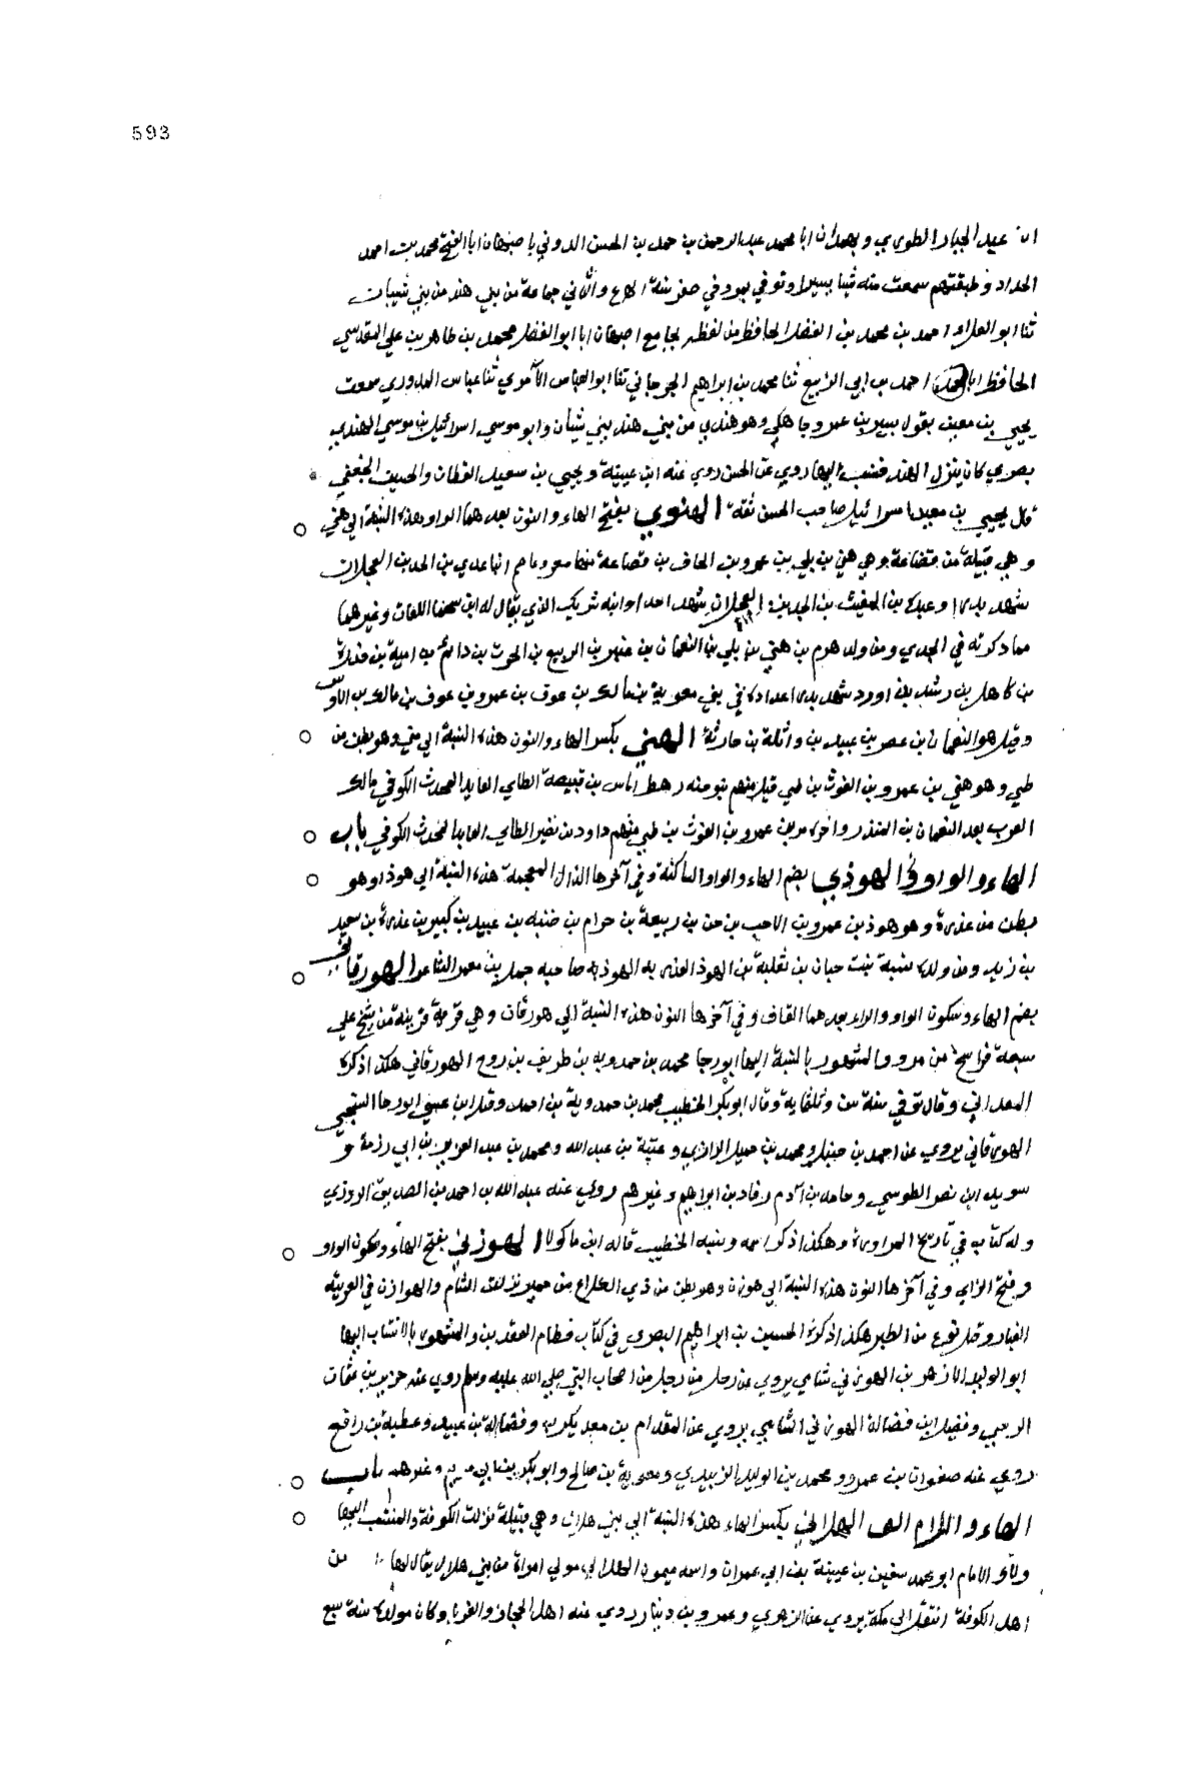 593
ابن عبد الجبار الطوري وبهمدان ابا محمد عبد الرحمن بن حمد بن الحسن الدوني باصبهان ابا الفتح محمد بن احمد
الحداد وطبقتهم سمعت منه شيئا يسيرا وتوفي بهرو في صفر سنة والثاني جماعة من بني هند من بني شيبان
ثنا ابو العلاء احمد بن محمد بن الفضل الحافظ من لفظه بجامع اصبهان ابا ابو الفضل محمد بن طاهر بن علي المقدسي
الحافظ ابا احمد بن ابي الربيع ثنا محمد بن ابراهيم الجرجاني ثنا ابو العباس الاموي ثنا عباس الدوري سمعت
يحيى بن معين يقول بشير بن عمرو جاهلي وهو هندي من بني هند بني شيبان وابو موسى اسرائيل بن موسى الهندي
بصري كان ينزل الهند فنسب اليها روى عن الحسن روى عنه ابن عيينة ويحيى بن سعيد القطان والحسين الجعفي
قال يحيى بن معين اسرائيل صاحب الحسن ثقة الهنوي بفتح الهاء والنون بعدهما الواو هذه النسبة الى هني
وهي قبيلة من قضاعة وهي هني بن بلي بن عمرو بن الحاف بن قضاعة منها معن وعاصم ابنا عدي بن الجد بن العجلان
شهد بدرا وعبدة بن المغيث بن الجد بن العجلان شهد احدا وابنه شريك الذي يقال له ابن سحما اللعان وغيرهما
مما ذكرته في الجدي ومن ولد هرم بن هني بن بلي بن النعمان بن
بن كاهل بن رشد بن شهد بدرا عداده في بني معوية بن مالك بن عوف بن عمرو بن عوف بن مالك بن الاوس
وقيل هو النعمان بن عصر بن عبيد بن واثلة بن حارثة الهني بكسر الهاء والنون هذه النسبة الى هني وهو بطن من
طي وهو هني بن عمرو بن الغوث بن طي قيل منهم رهط اياس بن قبيصة الطاي العابد المحدث الكوفي مالك
العرب بعد النعمان بن المنذر واخرمن عمرو بن الغوث بن طي منهم داود بن نصير الطاي العابد المحدث الكوفي باب
الهاء والواو الهوذي بضم الهاء والواو الساكنة وفي آخرها الذال المعجمة هذه النسبة الى هوذ وهو
بطن من عذرة وهو هوذ بن عمرو بن الاحب بن حن بن ربيعة بن حرام بن ضنه بن عبيد بن كبير بن عذرة بن سعد
بن زيد ومن ولده بثينة بنت حيان بن ثعلبة بن الهوذ العذريه الهوذيه صاحبه جميل بن معمر الشاعر الهورقاني
بضم الهاء وسكون الواو والراء بعدهما القاف وفي آخرها النون هذه النسبة الى هورقان وهي قرية قريبة من سنج على
سبعة فراسخ من مرو والمشهور بالنسبة اليها ابو رجا محمد بن حمدويه بن طريف بن روح الهورقاني هكذا ذكره
المعداني وقال توفي سنة ست وثلثمايه وقال ابو بكر الخطيب محمد بن حمدوية بن احمد وقيل ابن عيسى ابو رجا السنجي
الهورقاني يروي عن احمد بن حنبل ومحمد بن حميد الرازي وعتبة بن عبد الله ومحمد بن عبد العزيز بن ابي رزمة و
سويد ابن نصر الطوسي وحامد بن آدم ورقاد بن ابراهيم وغيرهم روى عنه عبد الله بن احمد بن الصديق المروزي
وله كتاب في تاريخ المراوزة وهكذا ذكر اسمه ونسبه الخطيب قاله ابن ماكولا الهوزني بفتح الهاء وسكون الواو
وفتح الزاي وفي آخرها النون هذه النسبة الى هوزن وهو بطن من ذي الكلاع من حمير نزلت الشام والهوازن في العربية
الغبار وقيل نوع من الطير هكذا ذكره الحسين بن ابراهيم البصري في كتاب نظام العقدين والمشهور بالانتساب اليها
ابو الوليد الازهر بن الهوزني شامي يروي عن رجل من رجل من اصحاب النبي صلى الله عليه وسلم روى عنه حريز بن عثمان
الرحبي وفضيل ابن فضالة الهوزني الشامي يروي عن المقدام بن معدي كرب وفضالة بن عبيد وعطية بن رافع
روى عنه صفوان بن عمرو ومحمد بن الوليد الزبيدي ومعوية بن صالح وابو بكر بن ابي مريم وغيرهم باب
الهاء واللام الف الهلالي بكسر الهاء هذه النسبة الى بني هلال وهي قبيلة نزلت الكوفة والمنتسب اليها
ولاء الامام ابو محمد سفين بن عيينة بن ابي عمران واسمه ميمون الهلالي مولى امراة من بني هلال يقال لها من
اهل الكوفة انتقل الى مكة يروي عن الزهري وعمرو بن دينار روى عنه اهل الحجاز والغربا وكان مولده سنة سبع